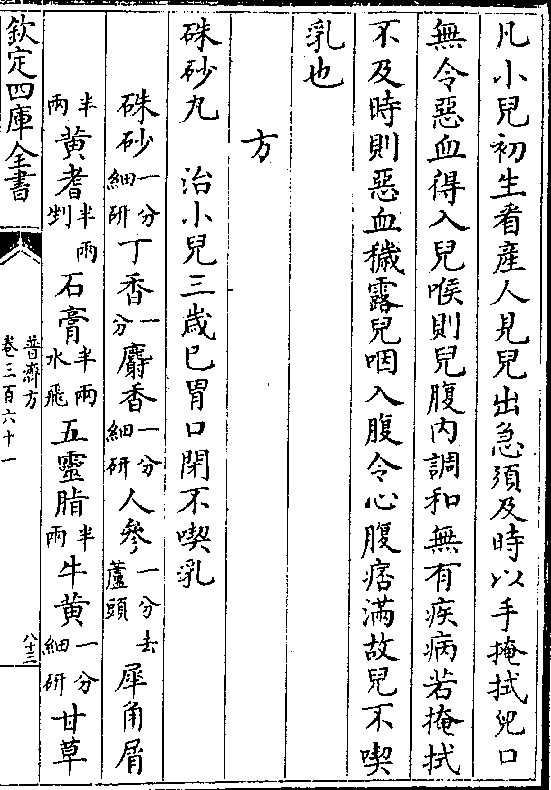 凡小兒初生看産人見兒出急須及時以手掩拭兒口
無令惡血得入兒喉則兒腹内調和無有疾病若掩拭
不及時則惡血穢露兒咽入腹令心腹痞滿故兒不喫
乳也
方
硃砂丸　治小兒三歲已胃口閉不喫乳
硃砂一分細研丁香一分麝香一分細研人參一分去蘆頭犀角屑
半兩黄耆半兩剉石膏半兩水飛五靈脂半兩牛黄一分細研甘草
欽定四庫全書
普濟方
卷三百六十一
八十三